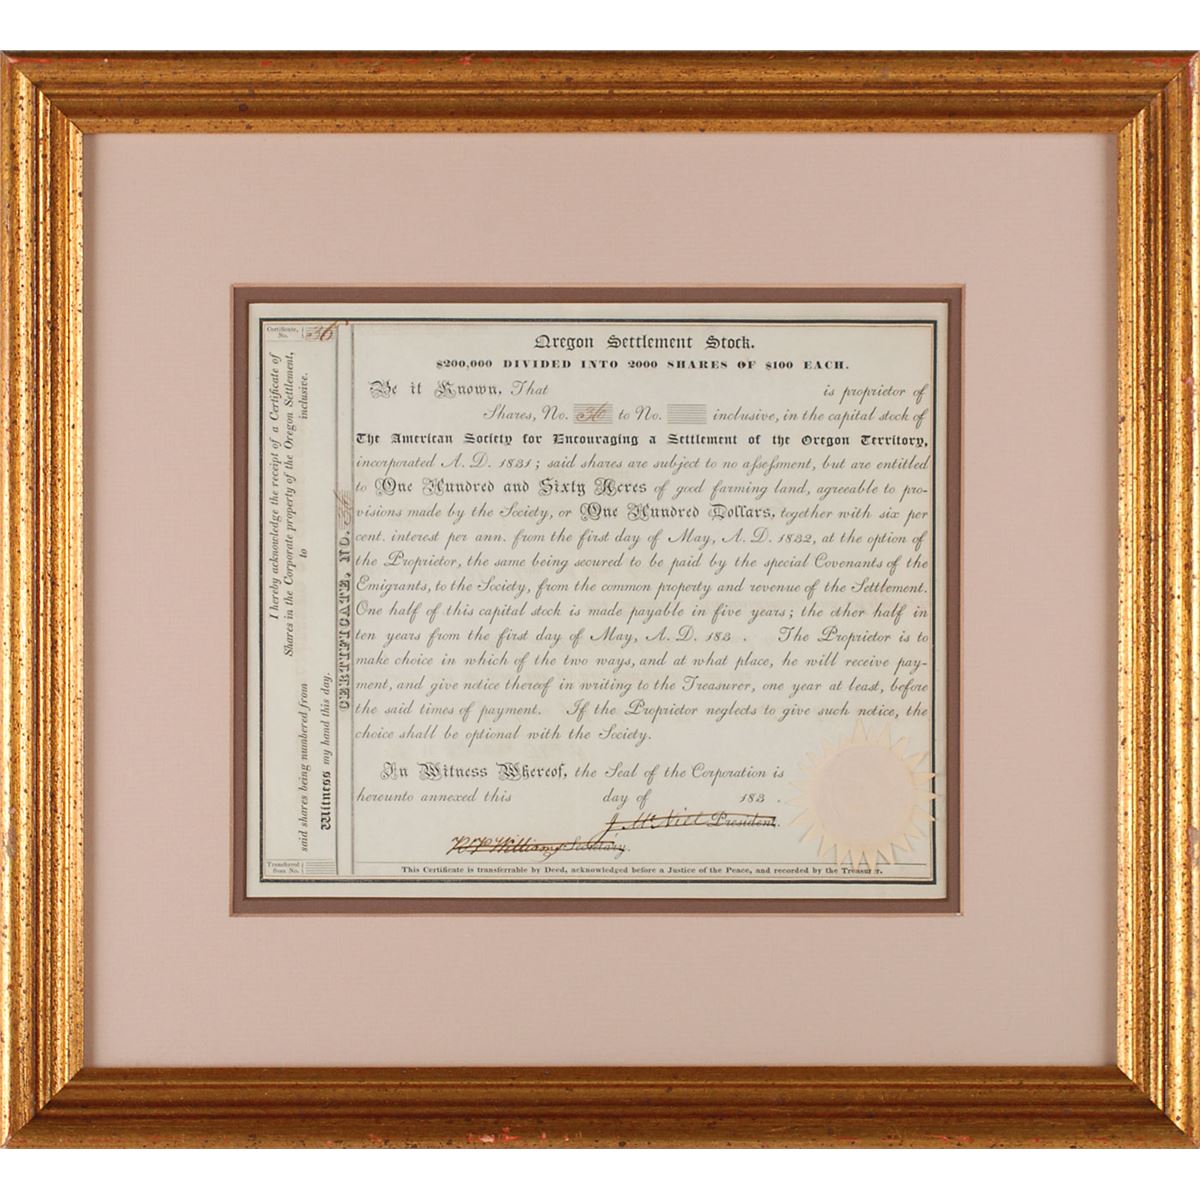 Certificate,
No. 36
I hereby acknowledge the receipt of a Certificate of
Shares in the Corporate property of the Oregon Settlement,
said shares being numbered from to inclusive.
Witness my hand this day.
Transferred
from No.
CERTIFICATE, NO. 36
Oregon Settlement Stock.
$200,000 DIVIDED INTO 2000 SHARES OF $100 EACH.
Be it Known, That is proprietor of
Shares, No. 36 to No. inclusive, in the capital stock of
The American Society for Encouraging a Settlement of the Oregon Territory,
incorporated A. D. 1831; said shares are subject to no assessment, but are entitled
to One Hundred and Sixty Acres of good farming land, agreeable to pro-
visions made by the Society, or One Hundred Dollars, together with six per
cent. interest per ann. from the first day of May, A. D. 1832, at the option of
the Proprietor, the same being secured to be paid by the special Covenants of the
Emigrants, to the Society, from the common property and revenue of the Settlement.
One half of this capital stock is made payable in five years; the other half in
ten years from the first day of May, A. D. 183 . The Proprietor is to
make choice in which of the two ways, and at what place, he will receive pay-
ment, and give notice thereof in writing to the Treasurer, one year at least, before
the said times of payment. If the Proprietor neglects to give such notice, the
choice shall be optional with the Society.
In Witness Whereof, the Seal of the Corporation is
hereunto annexed this day of 183 .
J. McNiel President.
R. P. Williams Secretary.
This Certificate is transferrable by Deed, acknowledged before a Justice of the Peace, and recorded by the Treasurer.